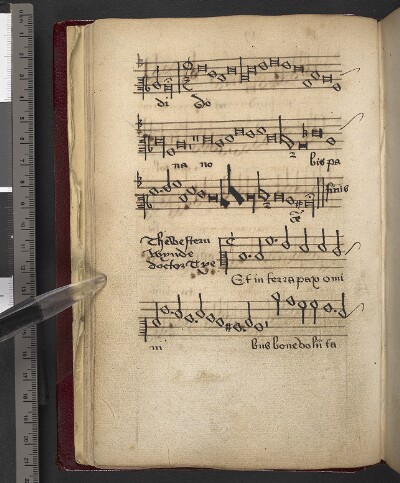 di do
na no bis pa
finis
ce
The bestern
wynde
doctor Tye
Et in terra pax omi
ni bus bone volu ta